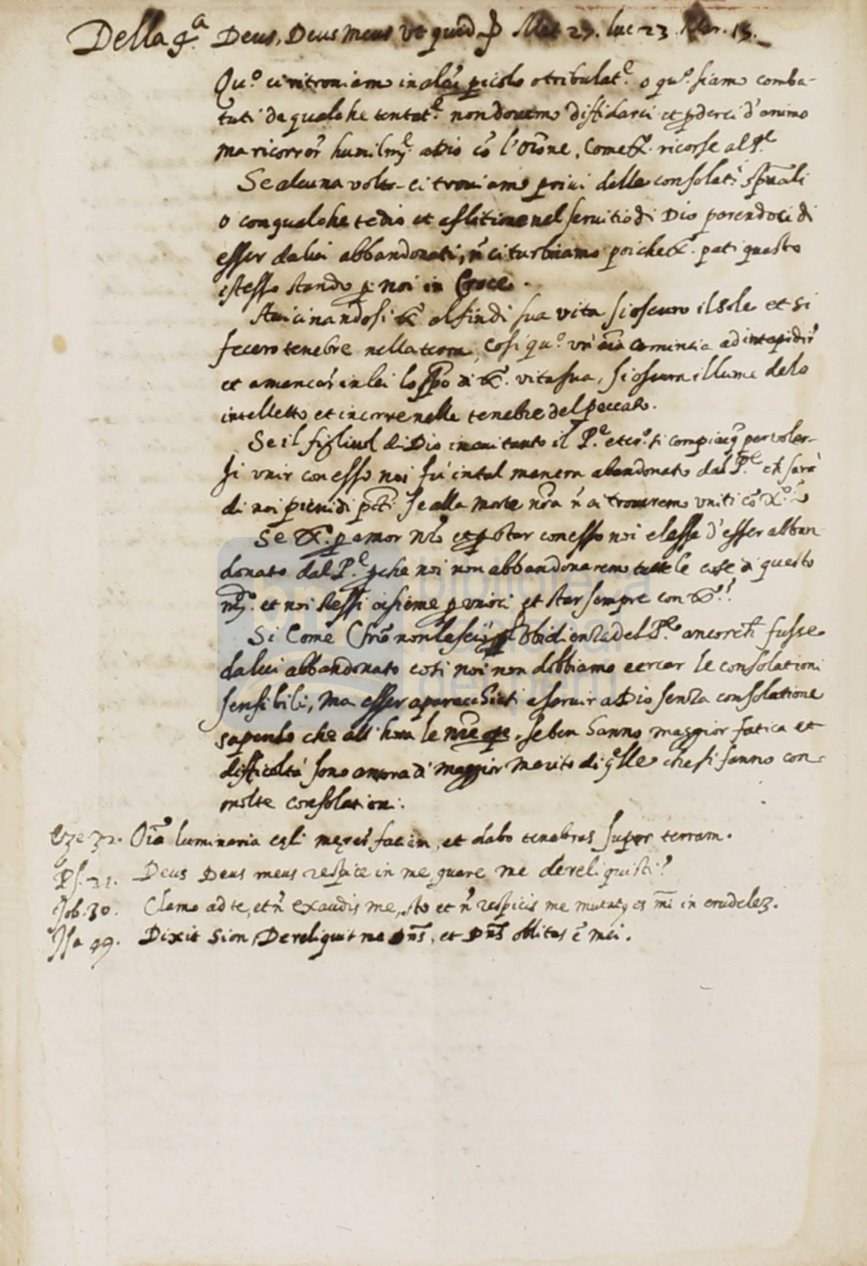 Della 4.ª Deus, Deus meus ut quid Mat 27. luc 23. Mar. 15.
Qu.º ci ritroviamo in alcũ picolo o tribulat.e o qu.º siamo comba-
tuti da qualche tentat.e non dovemo diffidarci et p̱derci d'animo
ma ricorrer humilm.e a Dio cõ l'orõne, Come X.º ricorse al P.e
Se alcuna volta ci troviamo privi delle consolat.i spũali
o con qualche tedio et aflitione nel servitio di Dio parendoci di
esser da lui abbandonati, ñ ci turbiamo poiche X.º pati questo
istesso stando p̱ noi in Croce.
Avicinandosi X.º al fin di sua vita si oscuro il sole et si
fecero tenebre nella terra, cosi qu.º un'aĩa comincia ad intepidir
et a mancar in lei lo spõ di X.º vita sua, si oscura il lume delo
intelletto et incorre nelle tenebre del peccato.
Se il figliuol di Dio tanto il P.e per voler-
si unir con esso noi fu in tal maniera abandonato dal P.e ch̃ sarà
di noi pieni di pctĩ se alla morte nr̃a ñ ci trovaremo uniti cõ X.º
Se X.º p̱ amor nrõ et p̱ star con esso noi elesse d'esser abban
donato dal P.e p̱che noi non abbandonaremo tutte le cose di questo
mõ. et noi stessi insieme p̱ unirci et star sempre con X.º!
Si Come Chrõ non lasciò l'obidienza del P.e ancorch̃ fusse
da lui abbandonato cosi noi non dobbiamo cercar le consolationi
sensibili, ma esser aparecchiati a servir a Dio senza consolatione
sapendo che all'hora le nr̃e op̱e, se ben hanno maggior fatica et
difficoltà sono ancora di maggior merito di q̃lle che si fanno con
molte consolationi.
Eze. 32. Oĩa luminaria cęli męrer̃ faciam, et dabo tenebras super terram.
Ps. 21. Deus Deus meus respice in me, quare me dereliquisti?
Job. 30. Clamo ad te, et ñ exaudis me, sto et ñ respicis me mutatus es m̃i in crudelẽ.
Isa 49. Dixit Sion, Dereliquit me Dñs, et Dñs oblitus ẽ mei.